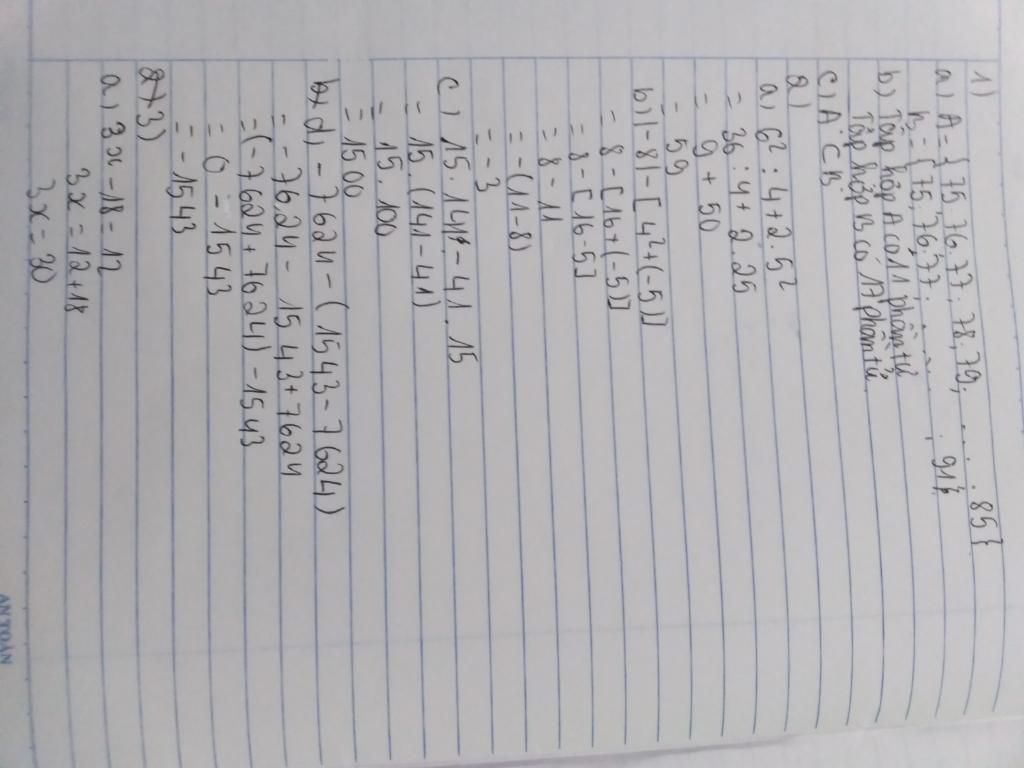 1)
a) A = { 75, 76, 77, 78, 79, ........ 85 }
B = { 75, 76, 77. ........ , 91 }
b) Tập hợp A có 11 phần tử
Tập hợp B có 17 phần tử
c) A ⊂ B
2)
a) 6² : 4 + 2 . 5²
= 36 : 4 + 2 . 25
= 9 + 50
= 59
b) |-8| - [4² + (-5)]
= 8 - [16 + (-5)]
= 8 - [16 - 5]
= 8 - 11
= -(11 - 8)
= -3
c) 15 . 141 - 41 . 15
= 15 . (141 - 41)
= 15 . 100
= 1500
d) - 7624 - (1543 - 7624)
= - 7624 - 1543 + 7624
= (-7624 + 7624) - 1543
= 0 - 1543
= -1543
3)
a) 3x - 18 = 12
3x = 12 + 18
3x = 30
AN TOÀN